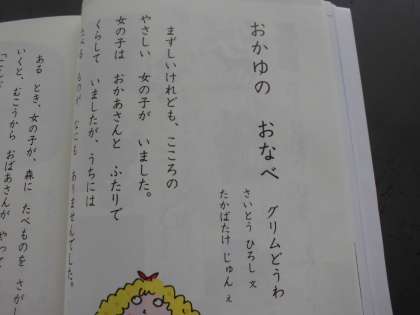 おかゆの　おなべ　グリムどうわ
さいとう ひろし 文
たかばたけ じゅん え
まずしいけれども、こころの
やさしい　女の子が　いました。
女の子は　おかあさんと　ふたりで
くらして　いましたが、うちには
たべる ものが なにも ありませんでした。
ある　とき、女の子が、森に　たべものを　さがし
いくと、むこうから　おばあさんが　やって